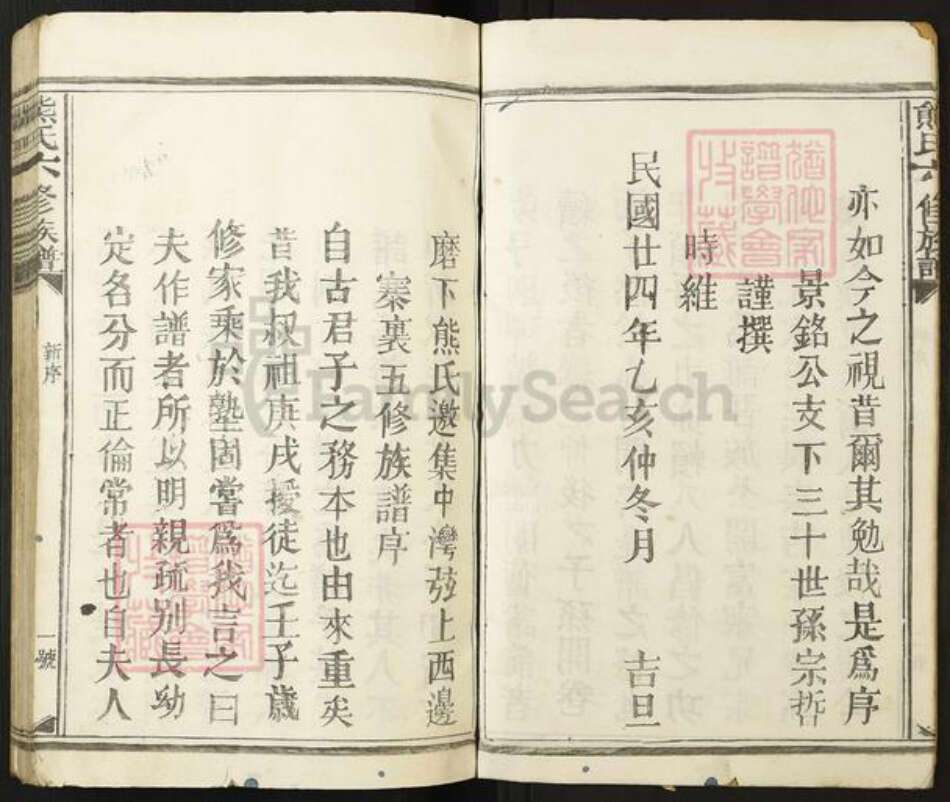 熊氏六修族譜
亦如今之視昔爾其勉哉是爲序
景銘公支下三十世孫宗哲
謹撰
時維
民國廿四年乙亥仲冬月　吉旦
磨下熊氏邀集中灣
上西邊
寨裏五修族譜序
自古君子之務本也由來重矣
昔我叔祖庚戌授徒迄壬子歲
修家乘於塾固嘗爲我言之曰
夫作譜者所以明親疏別長幼
定各分而正倫常者也自夫人
熊氏六修族譜
新序
一號
FamilySearch